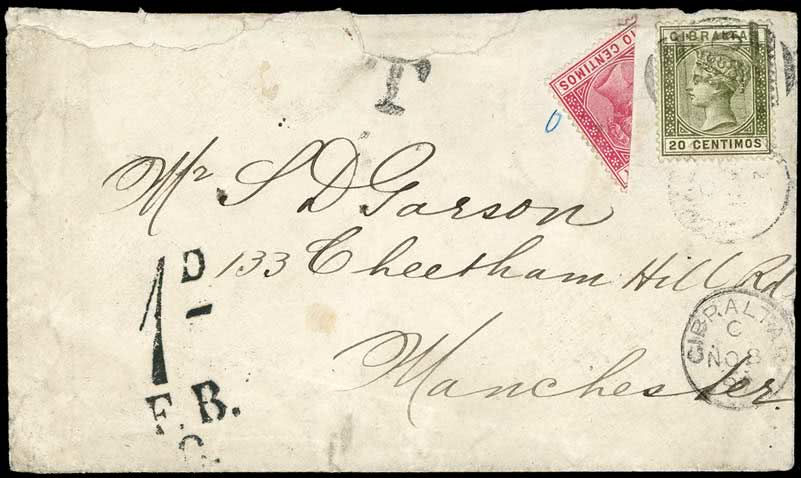 T
10 CENTIMOS
GIBRALTAR
20 CENTIMOS
0
Mr S D Garson
133 Cheetham Hill Rd
Manchester
1 D
F. B.
C.
GIBRALTAR
C
NO 8